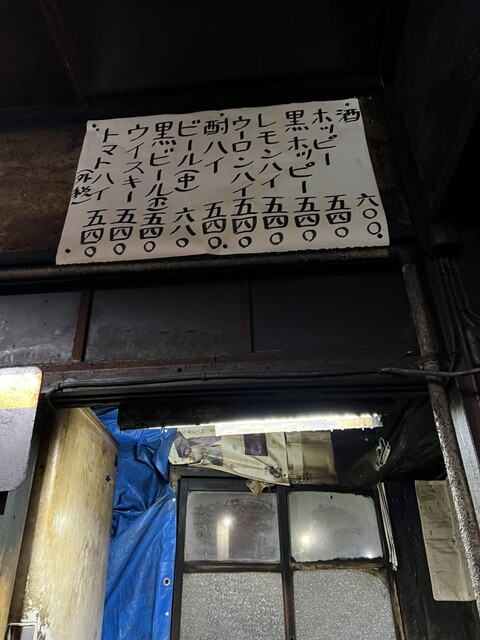 酒 六〇〇
ホッピー 五四〇
黒ホッピー 五四〇
レモンハイ 五四〇
ウーロンハイ 五四〇
酎ハイ 五四〇
ビール(中) 六八〇
黒ビール(小) 五四〇
ウイスキー 五四〇
トマトハイ 五四〇
外税